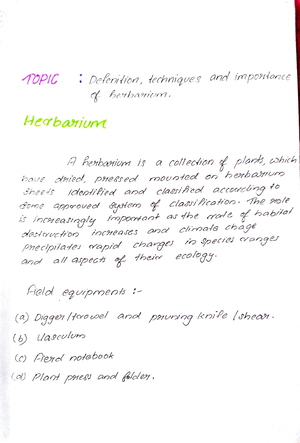 TOPIC : Defenition, techniques and importance
of herbarium.
Herbarium
A herbarium is a collection of plants, which
have dried, pressed mounted on herbarium
sheets identified and classified according to
some approved system of classification. The role
is increasingly important as the rate of habital
destruction increases and climate chage
precipilates rapid changes in species ranges
and all aspects of their ecology.
Field equipments :-
(a) Digger/trowel and pruning knife /shear.
(b) Vasculum
(c) Field notabook
(d) Plant press and folder.